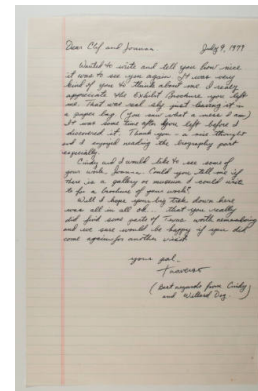 Dear Clif and Joanna July 9, 1979
Wanted to write and tell you how nice
it was to see you again. It was very
kind of you to think about me. I really
appreciate the Exhibit Brochure you left
me. That was real sly just leaving it in
a paper bag (You saw what a mess I am)
It was some time after you left before I
discovered it. Thank you - a nice thought
and I enjoyed reading the biography part
especially.
Cindy and I would like to see some of
your work, Joanna. Could you tell me if
there is a gallery or museum I could write
to for a brochure of your work?
Well I hope your big trek down here
was all in all ok - that you really
did find some parts of Texas worth
and we sure would be happy if you did
come again for another visit
your pal.
(Best regards from Cindy
and Willard Dog.)